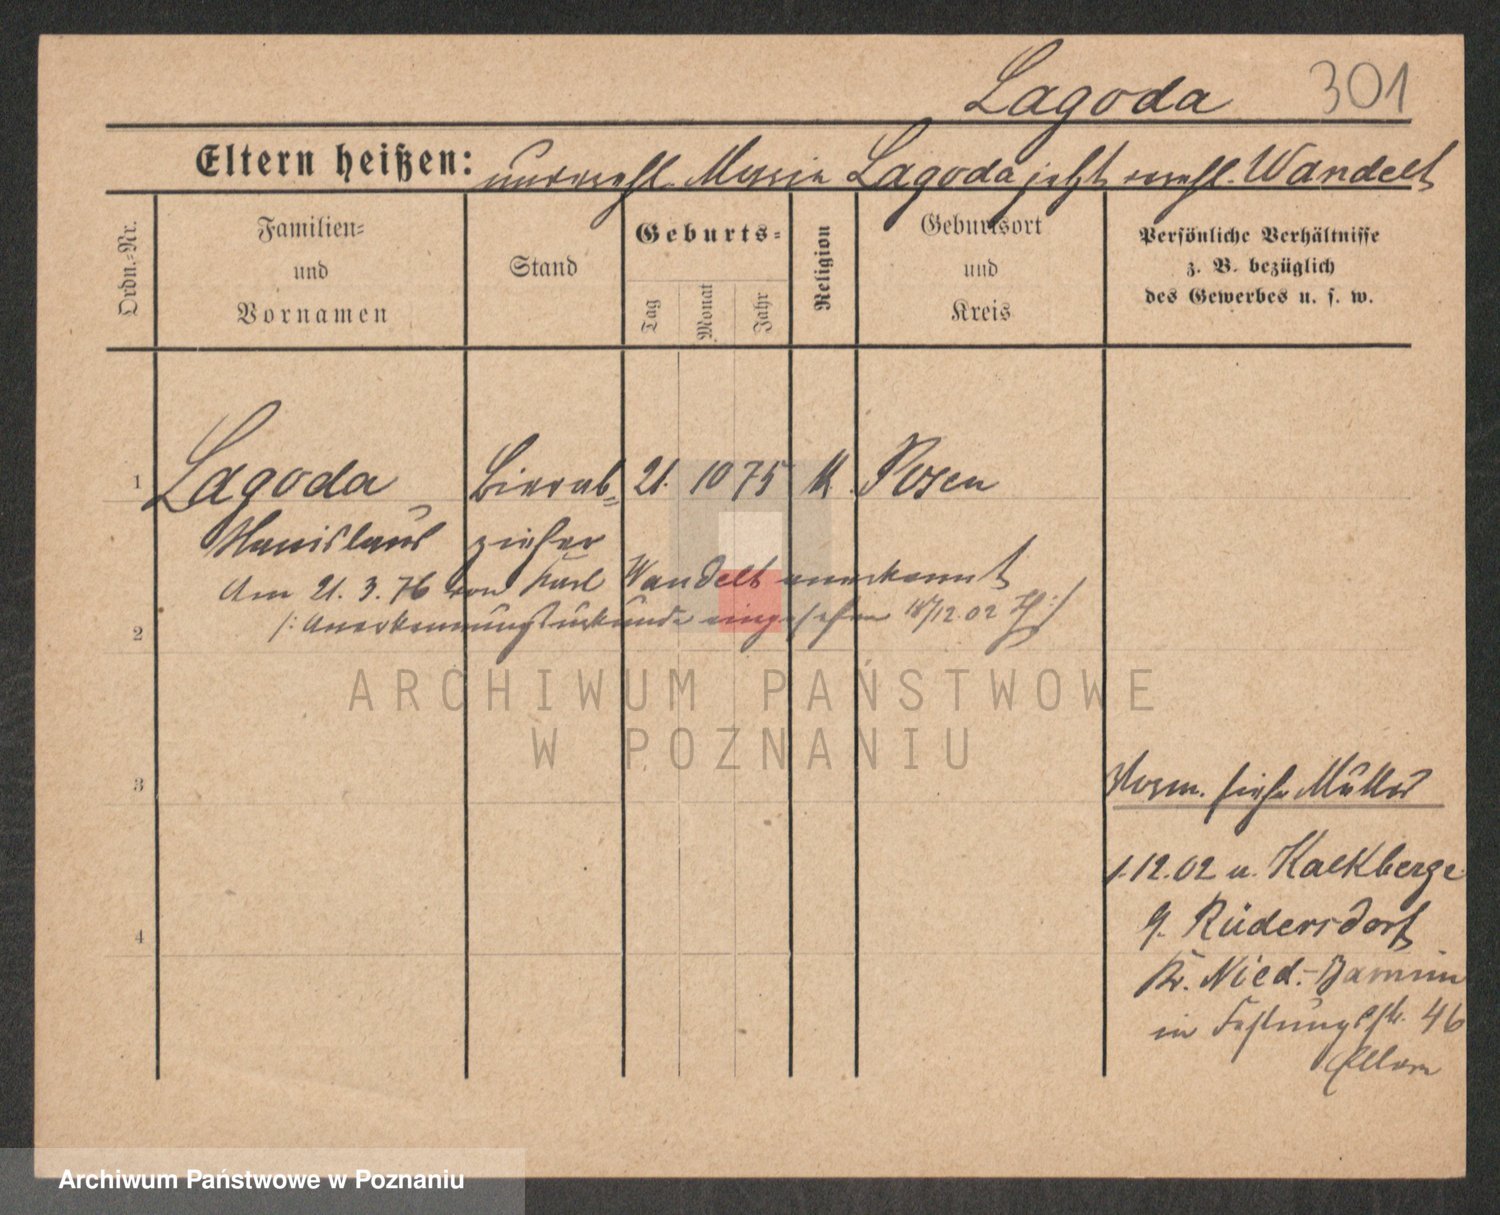 Lagoda 301
Eltern heißen: unverehl. Maria Lagoda jetzt verehl. Wandelt
Ordn.-Nr.
Familien-
und
Vornamen
Stand
Geburts-
Tag
Monat
Jahr
Religion
Geburtsort
und
Kreis
Persönliche Verhältnisse
z. B. bezüglich
des Gewerbes u. s. w.
1 Lagoda Bierab- 21. 10 75 k. Posen
Stanislaus zieher
Am 21. 3. 76 von Karl Wandelt anerkannt
/: Anerkennungsurkunde eingesehen 18/12.02
2
ARCHIWUM PAŃSTWOWE
W POZNANIU
3
siehe Müller
1.12.02 n. Kalkberge
b. Rüdersdorf
Kr. Nied.-Barnim
4
in Festungsstr. 46
Eltern
Archiwum Państwowe w Poznaniu